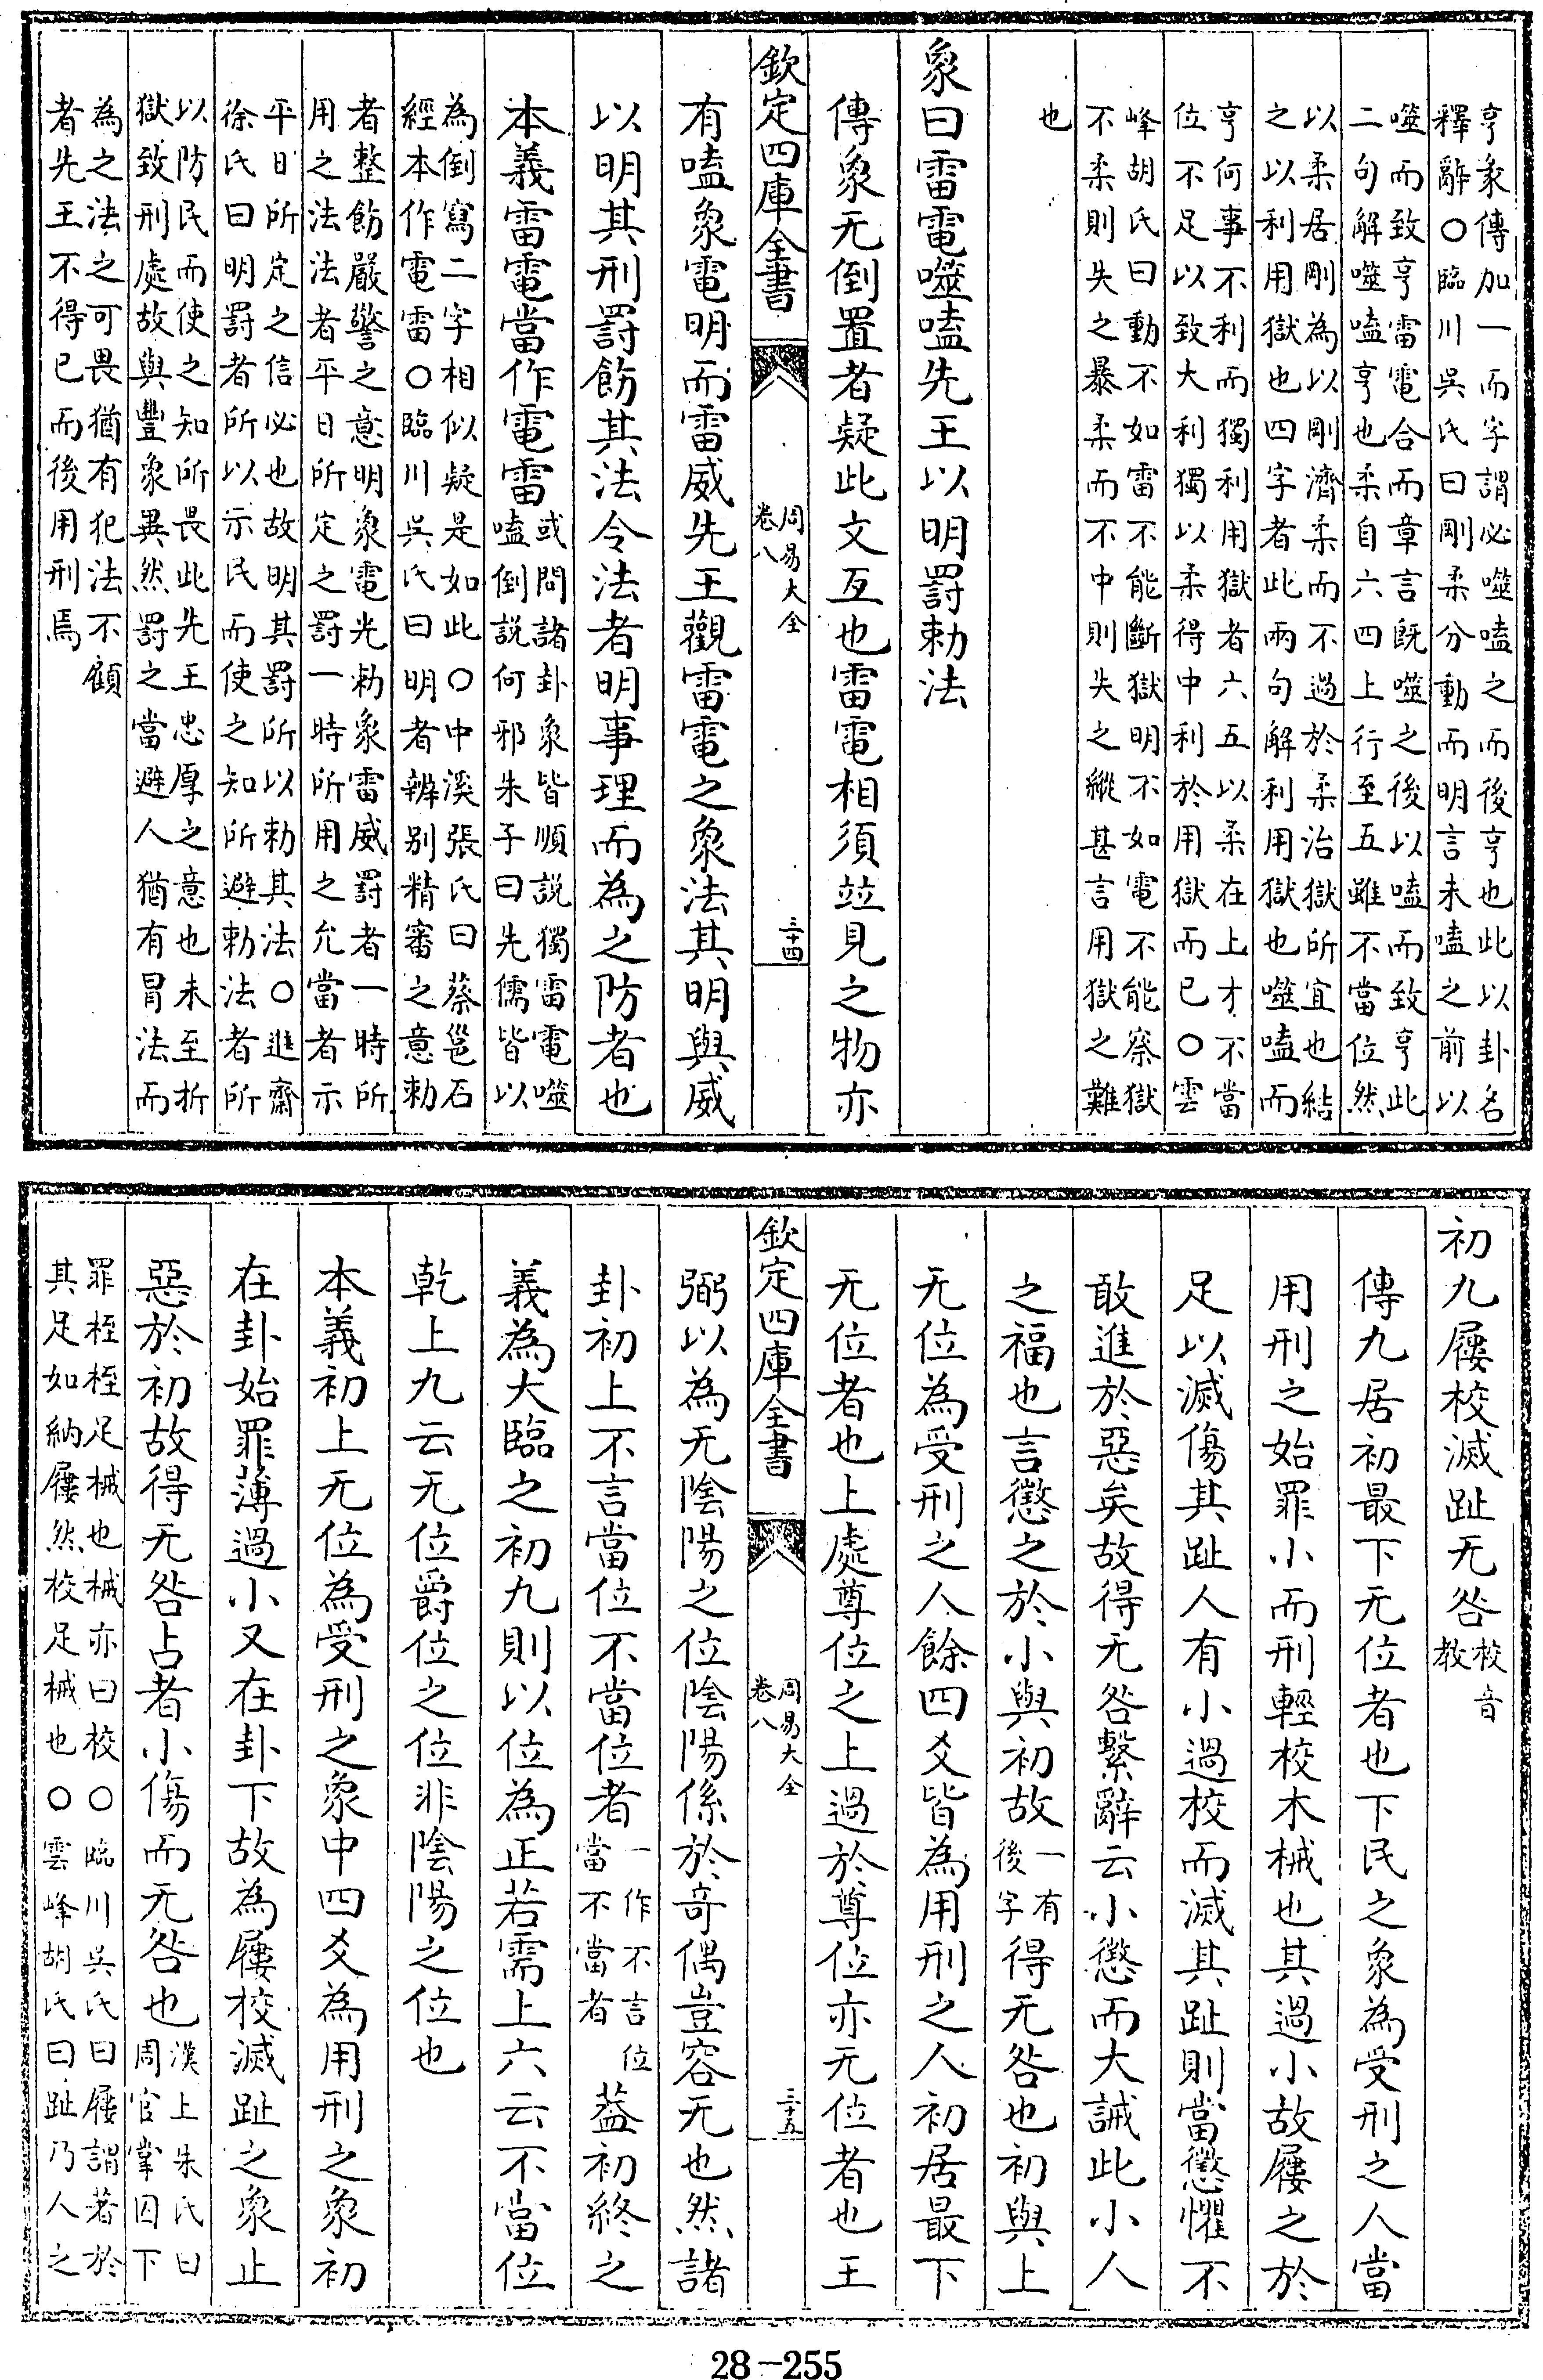 亨彖傳加一而字謂必噬嗑之而後亨也此以卦名
釋辭○臨川吳氏曰剛柔分動而明言未嗑之前以
噬而致亨雷電合而章言既噬之後以嗑而致亨此
二句解噬嗑亨也柔自六四上行至五雖不當位然
以柔居剛為以剛濟柔而不過於柔治獄所宜也結
之以利用獄也四字者此兩句解利用獄也噬嗑而
亨何事不利而獨利用獄者六五以柔在上才不當
位不足以致大利獨以柔得中利於用獄而已○雲
峰胡氏曰動不如雷不能斷獄明不如電不能察獄
不柔則失之暴柔而不中則失之縱甚言用獄之難
也
象曰雷電噬嗑先王以明罰勅法
傳象无倒置者疑此文互也雷電相須並見之物亦
欽定四庫全書
周易大全
卷八
三十四
有嗑象電明而雷威先王觀雷電之象法其明與威
以明其刑罰飭其法令法者明事理而為之防者也
本義雷電當作電雷
或問諸卦象皆順說獨雷電噬
嗑倒說何邪朱子曰先儒皆以
為倒寫二字相似疑是如此○中溪張氏曰蔡邕石
經本作電雷○臨川吳氏曰明者辨別精審之意勅
者整飭嚴警之意明象電光勅象雷威罰者一時所
用之法法者平日所定之罰一時所用之允當者示
平日所定之信必也故明其罰所以勅其法○進齋
徐氏曰明罰者所以示民而使之知所避勅法者所
以防民而使之知所畏此先王忠厚之意也未至折
獄致刑處故與豐象異然罰之當避人猶有冒法而
為之法之可畏猶有犯法不顧
者先王不得已而後用刑焉
初九屨校滅趾无咎
校音
教
傳九居初最下无位者也下民之象為受刑之人當
用刑之始罪小而刑輕校木械也其過小故屨之於
足以滅傷其趾人有小過校而滅其趾則當懲懼不
敢進於惡矣故得无咎繫辭云小懲而大誡此小人
之福也言懲之於小與初故
一有
後字
得无咎也初與上
无位為受刑之人餘四爻皆為用刑之人初居最下
无位者也上處尊位之上過於尊位亦无位者也王
欽定四庫全書
周易大全
卷八
三十五
弼以為无陰陽之位陰陽係於奇偶豈容无也然諸
卦初上不言當位不當位者
一作不言位
當不當者
蓋初終之
義為大臨之初九則以位為正若需上六云不當位
乾上九云无位爵位之位非陰陽之位也
本義初上无位為受刑之象中四爻為用刑之象初
在卦始罪薄過小又在卦下故為屨校滅趾之象止
惡於初故得无咎占者小傷而无咎也
漢上朱氏曰
周官掌囚下
罪桎桎足械也械亦曰校○臨川吳氏曰屨謂著於
其足如納屨然校足械也○雲峰胡氏曰趾乃人之
28-255